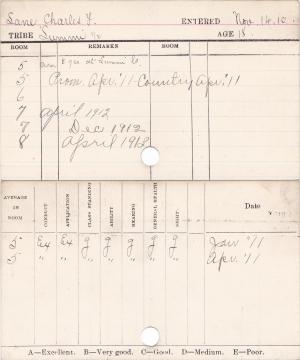 Lane, Charles F. ENTERED Nov. 14, 10
TRIBE Lummi AGE 18
ROOM REMARKS ROOM
5
5 Prom. Apr. '11 - Country Apr. '11
6
7 April 1912
7 Dec 1912
8 April 1913
AVERAGE IN ROOM CONDUCT APPLICATION CLASS STANDING ABILITY HEARING GENERAL HEALTH SIGHT Date
5 Ex Ex g g g g g Jan '11
5 " " " " " " " Apr. '11
A—Excellent. B—Very good. C—Good. D—Medium. E—Poor.